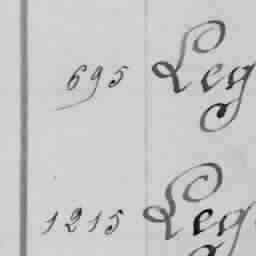 695 Leg
1215 Leg